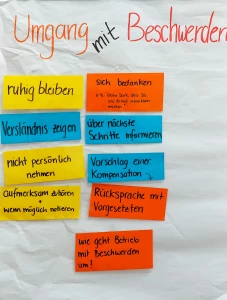 Umgang mit Beschwerden
ruhig bleiben
sich bedanken
Verständnis zeigen
über nächste
Schritte informieren
nicht persönlich
nehmen
Vorschlag einer
Kompensation
aufmerksam zuhören
+
wenn möglich notieren
Rücksprache mit
Vorgesetzten
wie geht Betrieb
mit Beschwerden
um!